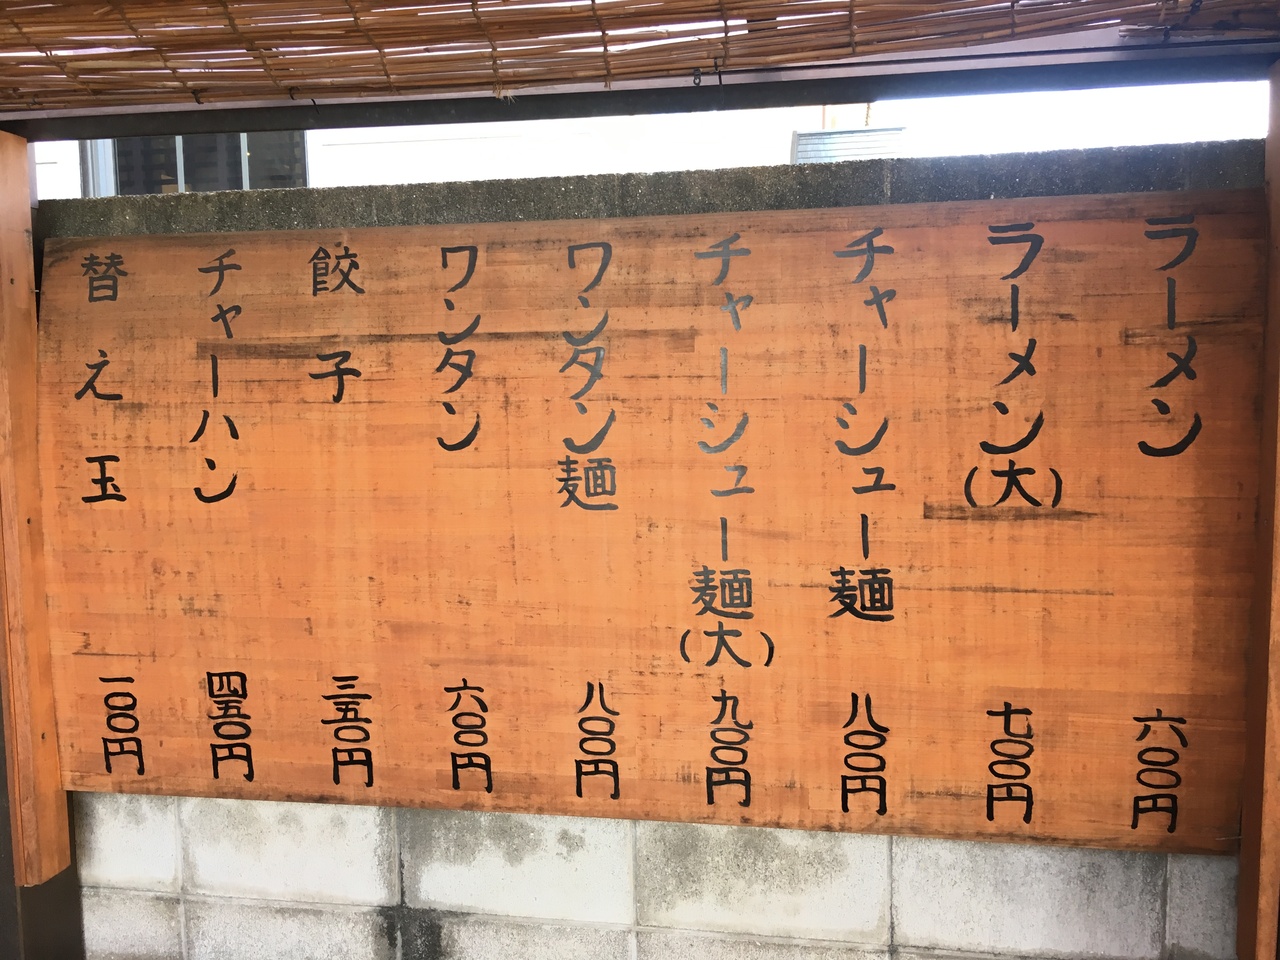 ラーメン 六〇〇円
ラーメン(大) 七〇〇円
チャーシュー麺 八〇〇円
チャーシュー麺(大) 九〇〇円
ワンタン麺 八〇〇円
ワンタン 六〇〇円
餃子 三五〇円
チャーハン 四五〇円
替え玉 一〇〇円